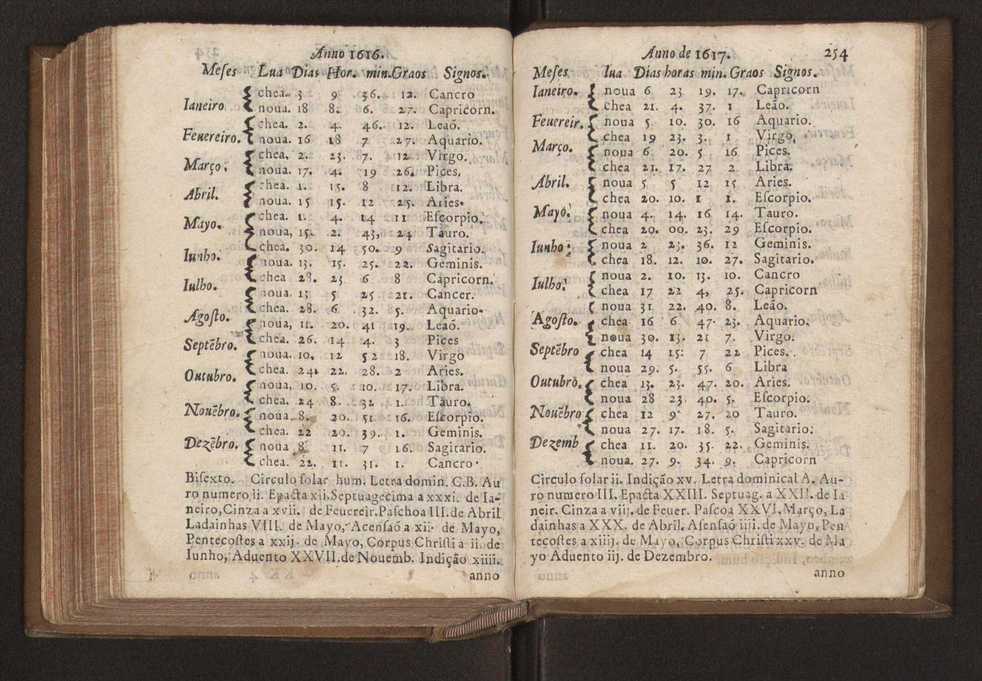 Anno 1616.
Meses Lua Dias Hor. min. Graos Signos.
Ianeiro chea. 3 9 36. 12. Cancro
noua. 18 8. 6. 27. Capricorn.
Feuereiro. chea. 2. 4. 46. 12. Leaõ.
noua. 16 18 7 27. Aquario.
Março. chea. 2. 23. 7. 12 Virgo.
noua. 17. 4. 19 26. Pices.
Abril. chea. 1. 15. 8 12. Libra.
noua. 15 15. 12 25. Aries.
Mayo. chea. 1. 4. 14 11 Eſcorpio.
noua, 15. 2. 43, 24 Tauro.
chea. 30. 14 50. 9 Sagitario.
Iunho. noua. 13. 15. 25. 22. Geminis.
chea 28. 23 6 8 Capricorn.
Iulho. noua. 13 5 25 21. Cancer.
chea. 28. 6 32. 5. Aquario.
Agoſto. noua, 11. 20. 41 19. Leaó.
chea. 26. 14 4. 3 Pices
Septẽbro. noua. 10. 12 52 18. Virgo
chea. 24. 22. 28. 2 Aries.
Outubro. noua, 10. 5. 10. 17. Libra.
chea. 24 8. 32 1. Tauro.
Nouẽbro. noua. 8. 20. 51 16. Eſcorpio.
chea. 22 20. 39. 1. Geminis.
Dezẽbro. noua 8. 11. 7 16. Sagitario.
chea. 22. 11. 31. 1. Cancro
Biſexto. Circulo ſolar hum. Letra domin. C.B. Au
ro numero ii. Epacta xii. Septuageſima a xxxi. de Ia-
neiro, Cinza a xvii. de Feuereir. Paſchoa III. de Abril
Ladainhas VIII. de Mayo, Acenſaó a xii. de Mayo,
Pentecoſtes a xxij. de Mayo, Corpus Chriſti a ii. de
Iunho, Aduento XXVII. de Nouemb. Indição xiiii.
anno
Anno de 1617. 254
Meſes lua Dias horas min. Graos Signos.
Ianeiro. noua 6 23 19. 17. Capricorn
chea 21. 4. 37. 1 Leão.
Feuereir. noua 5 10. 30. 16 Aquario.
chea 19 23. 3. 1 Virgo,
Março. noua 6 20. 5 16 Pices.
chea 21. 17. 27 2 Libra.
Abril. noua 5 5 12 15 Aries.
chea 20. 10. 1 1. Eſcorpio.
Mayo. noua 4. 14. 16 14. Tauro.
chea 20. 00. 23. 29 Eſcorpio.
Iunho; noua 2 23. 36. 12 Geminis.
chea 18. 12. 10. 27. Sagitario.
Iulho. noua 2. 10. 13. 10. Cancro
chea 17 22 4, 25. Capricorn
noua 31 22. 40. 8. Leão.
Agoſto. chea 16 6 47 23. Aquario.
noua 30. 13. 21 7. Virgo.
Septẽbro chea 14 15: 7 22 Pices.
noua 29. 5. 55. 6 Libra
Outubro. chea 13. 23. 47. 20. Aries.
noua 28 23 40. 5. Eſcorpio.
Nouẽbro chea 12 9 27. 20 Tauro.
noua 27. 17. 18. 5. Sagitario.
Dezemb chea 11. 20. 35. 22. Geminis.
noua. 27. 9. 34. 9. Capricorn
Circulo ſolar ii. Indição xv. Letra dominical A. Au-
ro numero III. Epacta XXIII. Septuag. a XXII. de Ia
neir. Cinza a viij. de Feuer. Paſcoa XXVI. Março, La
dainhas a XXX. de Abril. Aſenſaó iiij. de Mayo, Pen
tecoſtes a xiiij. de Mayo, Corpus Chriſti xxv. de Ma
yo Aduento iij. de Dezembro.
anno